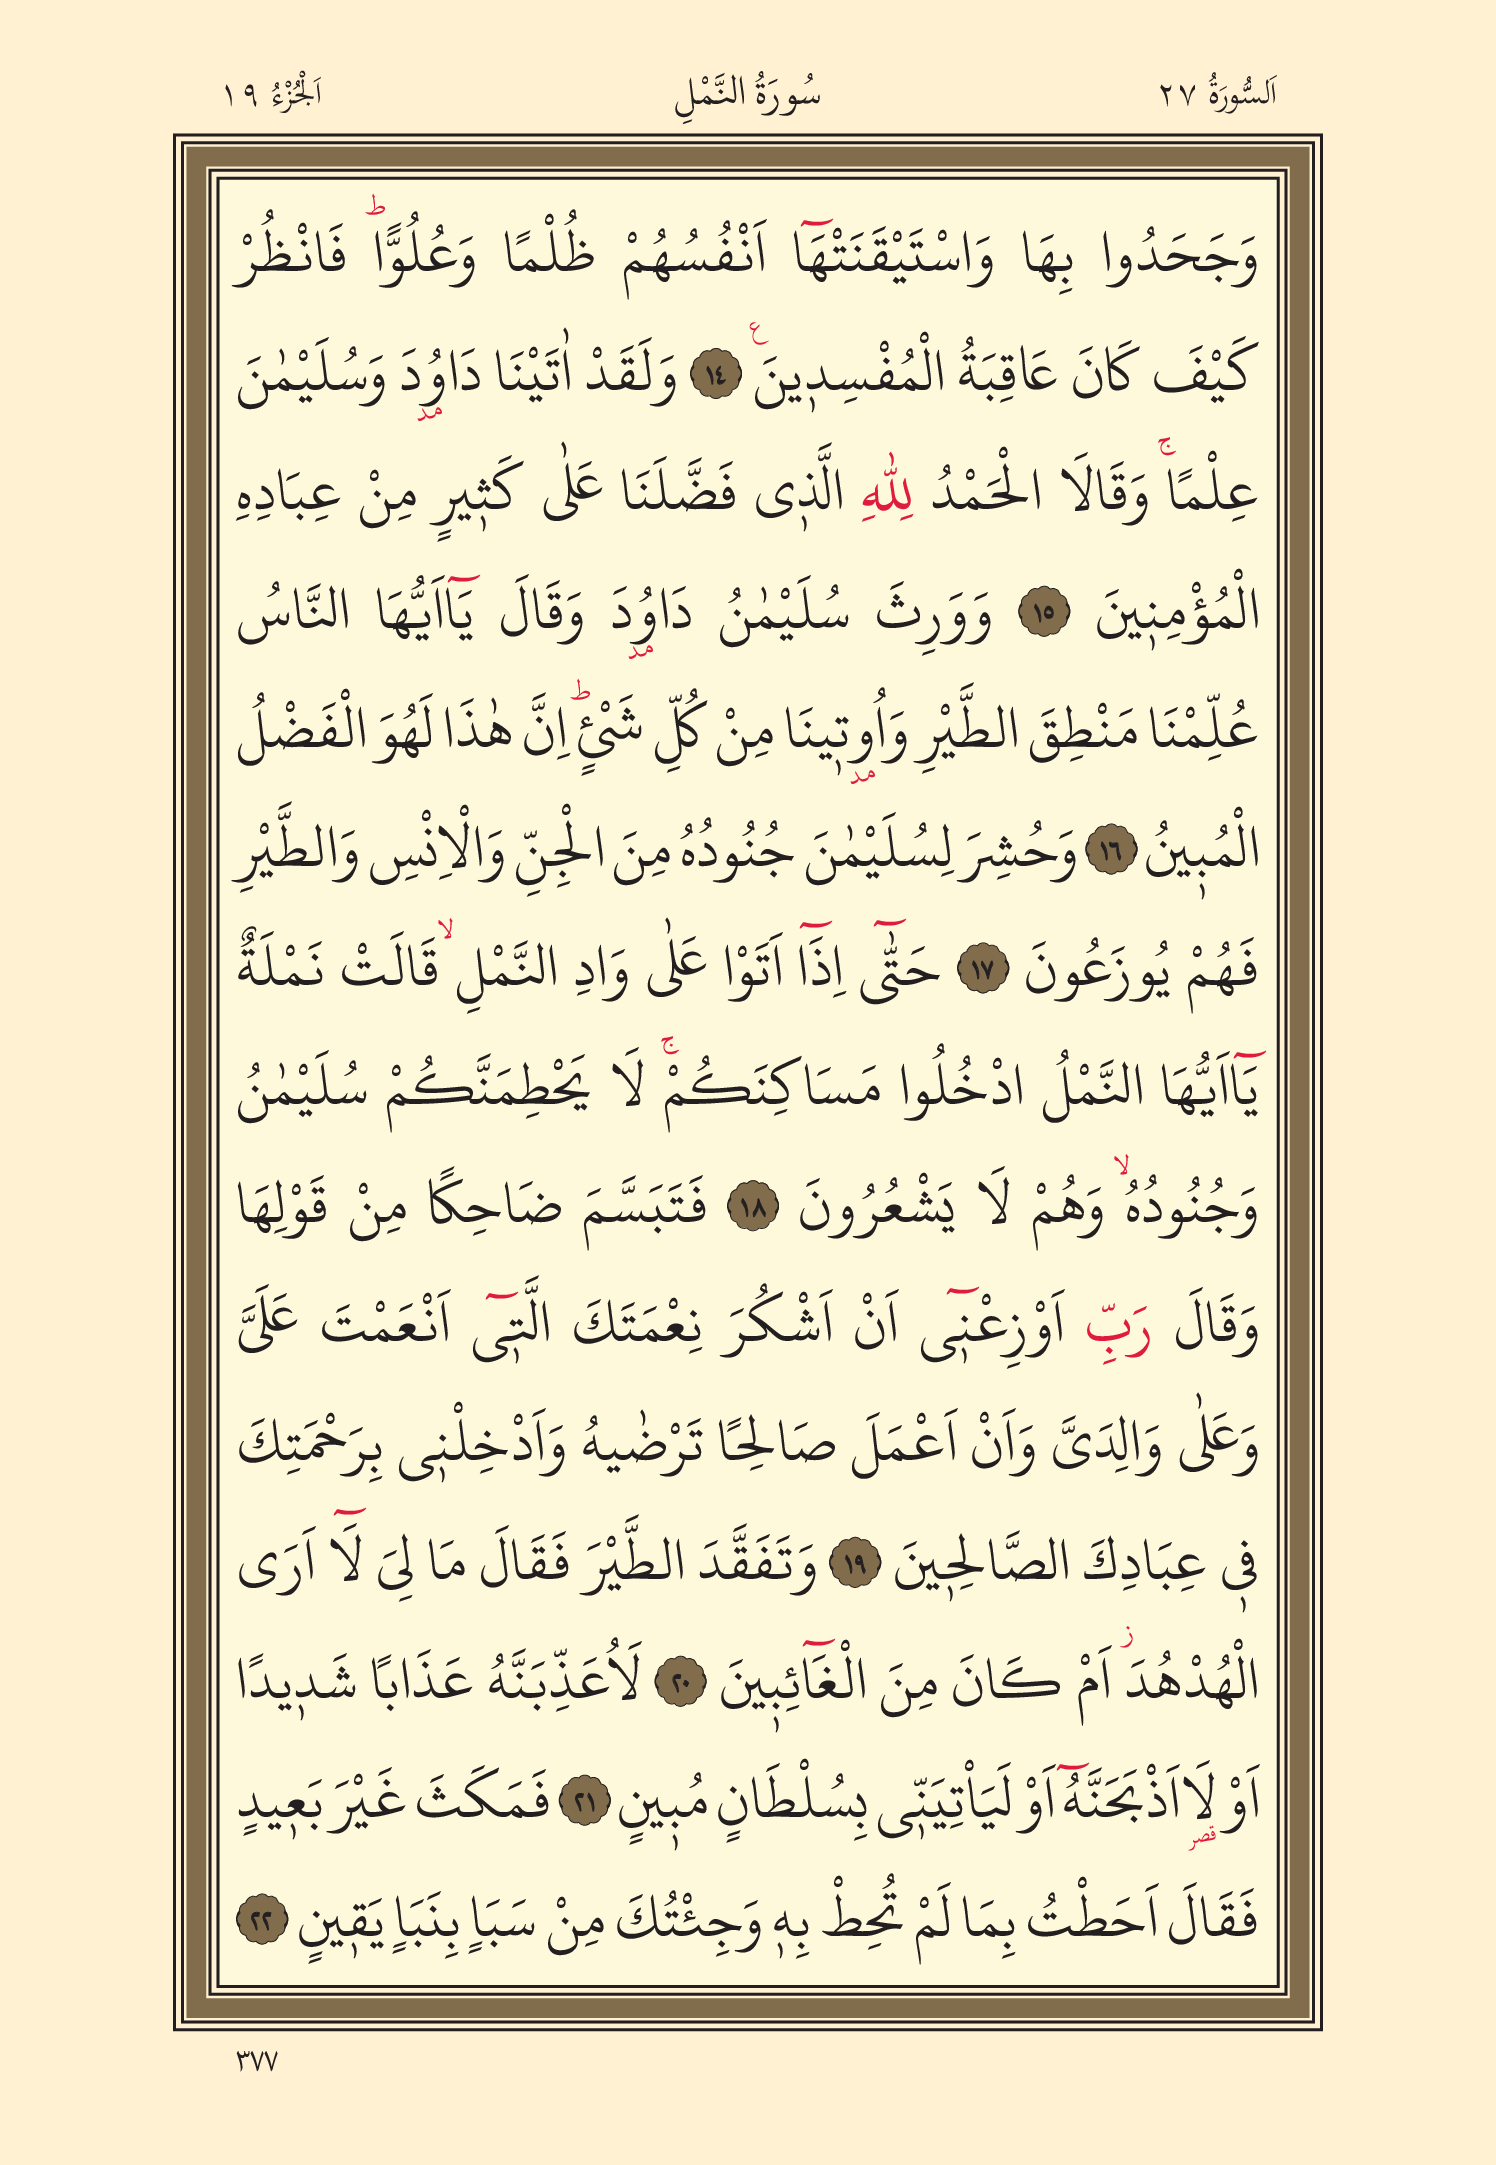 اَلسُّورَةُ ٢٧ سُورَةُ النَّمْلِ اَلْجُزْءُ ١٩
وَجَحَدُوا بِهَا وَاسْتَيْقَنَتْهَٓا اَنْفُسُهُمْ ظُلْمًا وَعُلُوًّاۜ فَانْظُرْ
كَيْفَ كَانَ عَاقِبَةُ الْمُفْسِد۪ينَ ع ١٤ وَلَقَدْ اٰتَيْنَا دَاوُدَ مد وَسُلَيْمٰنَ
عِلْمًاۚ وَقَالَا الْحَمْدُ لِلّٰهِ الَّذ۪ى فَضَّلَنَا عَلٰى كَث۪يرٍ مِنْ عِبَادِهِ
الْمُؤْمِن۪ينَ ١٥ وَوَرِثَ سُلَيْمٰنُ دَاوُدَ مد وَقَالَ يَٓااَيُّهَا النَّاسُ
عُلِّمْنَا مَنْطِقَ الطَّيْرِ وَاُوت۪ينَا مد مِنْ كُلِّ شَىْءٍۜ اِنَّ هٰذَا لَهُوَ الْفَضْلُ
الْمُب۪ينُ ١٦ وَحُشِرَ لِسُلَيْمٰنَ جُنُودُهُ مِنَ الْجِنِّ وَالْاِنْسِ وَالطَّيْرِ
فَهُمْ يُوزَعُونَ ١٧ حَتّٰٓى اِذَٓا اَتَوْا عَلٰى وَادِ النَّمْلِۙ قَالَتْ نَمْلَةٌ
يَٓااَيُّهَا النَّمْلُ ادْخُلُوا مَسَاكِنَكُمْۚ لَا يَحْطِمَنَّكُمْ سُلَيْمٰنُ
وَجُنُودُهُۙ وَهُمْ لَا يَشْعُرُونَ ١٨ فَتَبَسَّمَ ضَاحِكًا مِنْ قَوْلِهَا
وَقَالَ رَبِّ اَوْزِعْن۪ٓى اَنْ اَشْكُرَ نِعْمَتَكَ الَّت۪ٓى اَنْعَمْتَ عَلَىَّ
وَعَلٰى وَالِدَىَّ وَاَنْ اَعْمَلَ صَالِحًا تَرْضٰيهُ وَاَدْخِلْن۪ى بِرَحْمَتِكَ
ف۪ى عِبَادِكَ الصَّالِح۪ينَ ١٩ وَتَفَقَّدَ الطَّيْرَ فَقَالَ مَا لِىَ لَٓا اَرَى
الْهُدْهُدَ ز اَمْ كَانَ مِنَ الْغَٓائِب۪ينَ ٢٠ لَاُعَذِّبَنَّهُ عَذَابًا شَد۪يدًا
اَوْ لَا۬اَذْبَحَنَّهُٓ قصر اَوْ لَيَاْتِيَنّ۪ى بِسُلْطَانٍ مُب۪ينٍ ٢١ فَمَكَثَ غَيْرَ بَع۪يدٍ
فَقَالَ اَحَطْتُ بِمَا لَمْ تُحِطْ بِه۪ وَجِئْتُكَ مِنْ سَبَاٍ بِنَبَاٍ يَق۪ينٍ ٢٢
٣٧٧